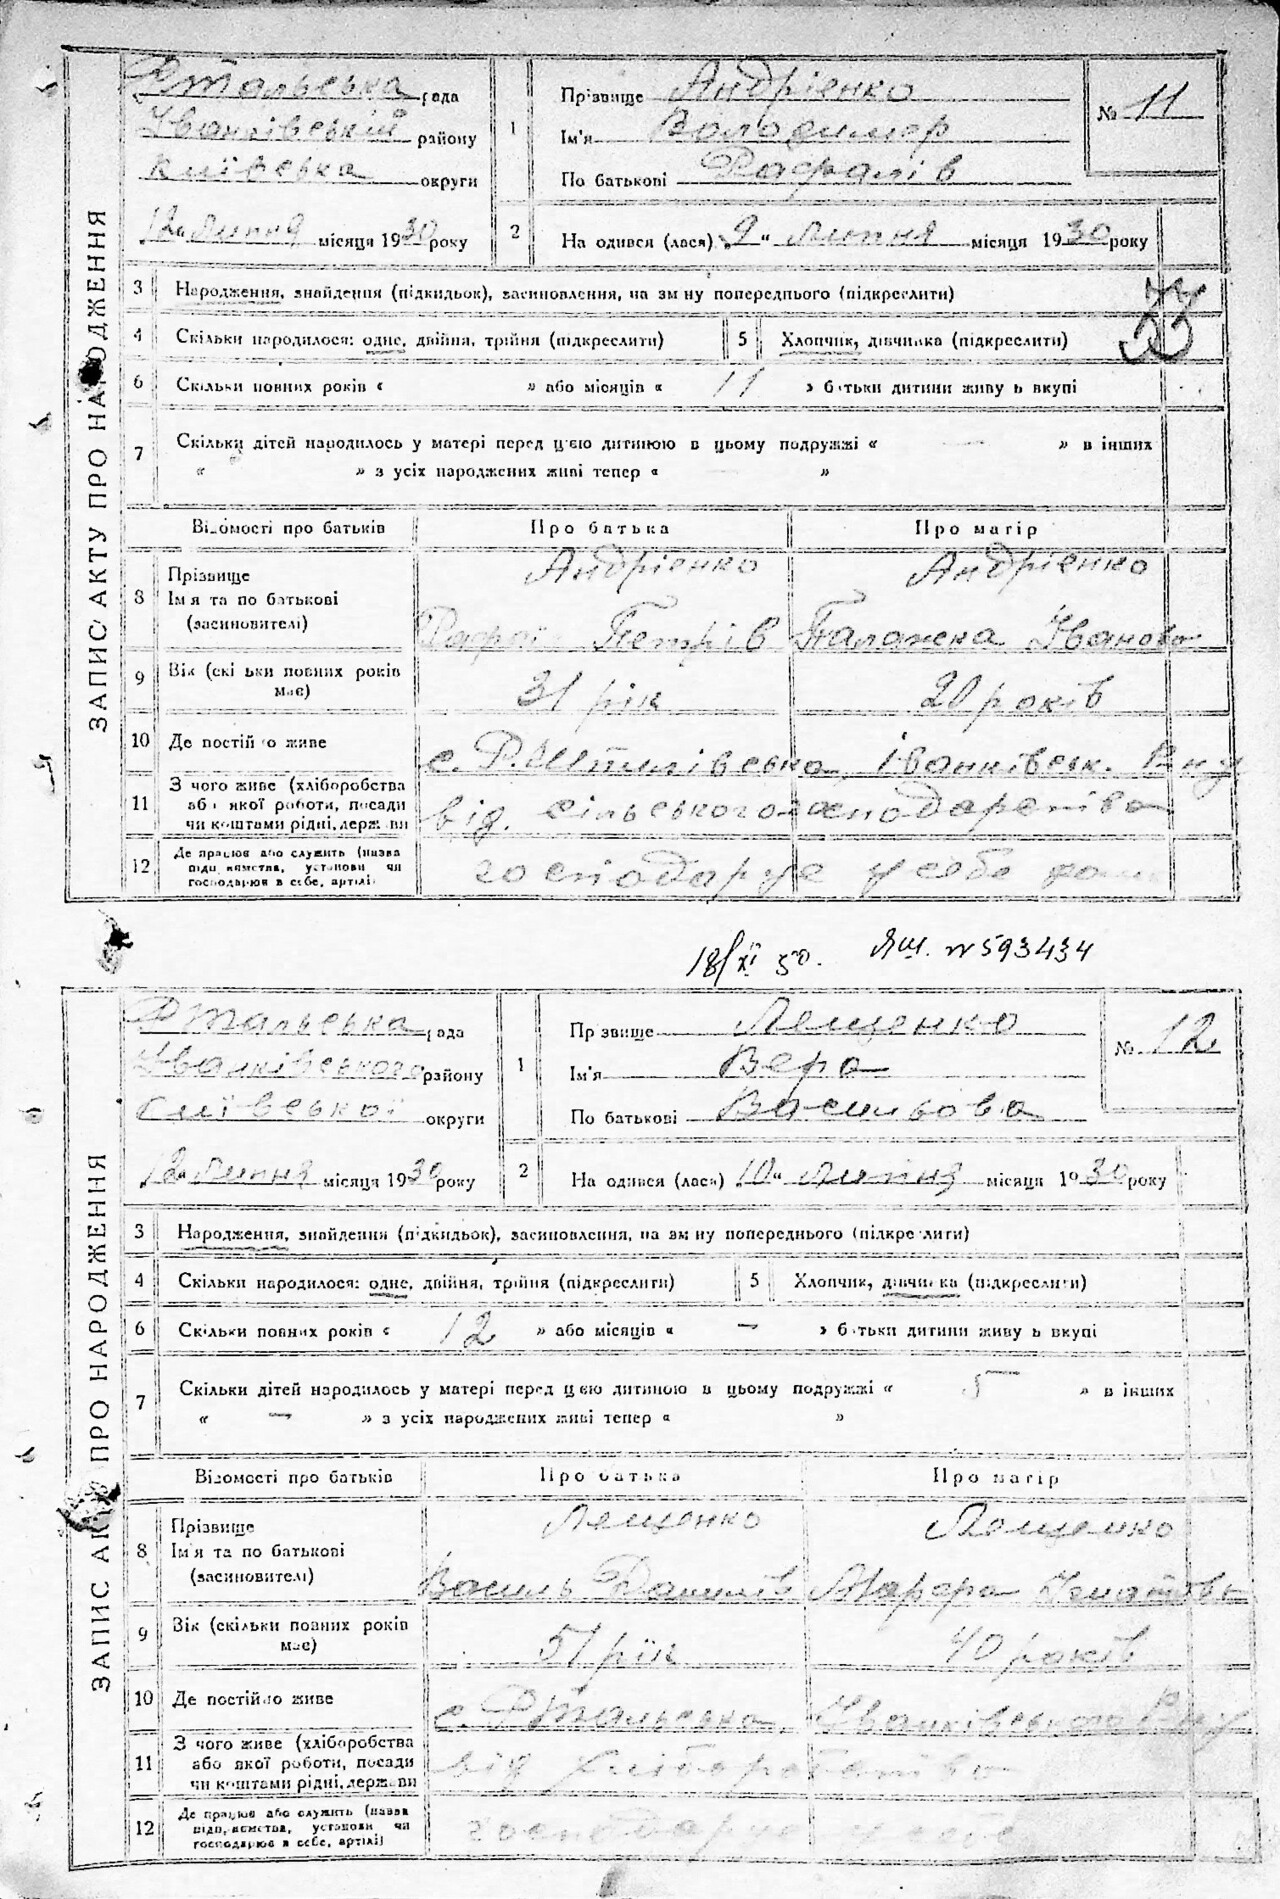 ЗАПИС АКТУ ПРО НАРОДЖЕННЯ
Ртальська рада
Іванківський району
Київська округи
12 липня місяця 1930 року
1
Прізвище Андрієнко
Ім'я Володимер
По батькові Рафалів
№ 11
2
На одився (лася) „9“ липня місяця 1930 року
3 Народження, знайдення (підкидьок), засиновлення, на зм ну попереднього (підкреслити)
4 Скільки народилося: одне, двійня, трійня (підкреслити) 5 Хлопчик, дівчинка (підкреслити)
6 Скільки повних років « » або місяців « 11 » батьки дитини живу ь вкупі
7 Скільки дітей народилось у матері перед цією дитиною в цьому подружжі « — » в інших
« » з усіх народжених живі тепер « »
Відомості про батьків Про батька Про матір
8 Прізвище Андрієнко Андрієнко
Ім я та по батькові
(засиновителі) Петрів Палажка Іванова
9 Вік (скі ьки повних років має) 31 рік 20 років
10 Де постійно живе с. Іванківськ. Р-ну
11 З чого живе (хліборобства або якої роботи, посади чи коштами рідні, держави від сільського господарства
12 Де працює або служить (назва підприємства, установи чи господарює в себе, артілі) господарує у себе
18/XI 50. ЯШ. № 593434
ЗАПИС АКТУ ПРО НАРОДЖЕННЯ
Ртальська рада
Іванківського району
Київської округи
12 липня місяця 1930 року
1
Пр звище Лещенко
Ім'я Вера
По батькові Васильова
№ 12
2
На одився (лася) „10“ липня місяця 1930 року
3 Народження, знайдення (підкидьок), засиновлення, на зм ну попереднього (підкреслити)
4 Скільки народилося: одне, двійня, трійня (підкреслити) 5 Хлопчик, дівчинка (підкреслити)
6 Скільки повних років « 12 » або місяців « — » батьки дитини живу ь вкупі
7 Скільки дітей народилось у матері перед цією дитиною в цьому подружжі « 5 » в інших
« — » з усіх народжених живі тепер « »
Відомості про батьків Про батька Про матір
8 Прізвище Лещенко Лещенко
Ім'я та по батькові
(засиновителі) Василь Данилів Марфа Игнатова
9 Вік (скільки повних років має) 51 рік 40 років
10 Де постійно живе с. Ртальська, Іванківського Р-ну
11 З чого живе (хліборобства або якої роботи, посади чи коштами рідні, держави від хліборобства
12 Де працює або служить (назва підприємства, установи чи господарює в себе, артілі) господарує у себе